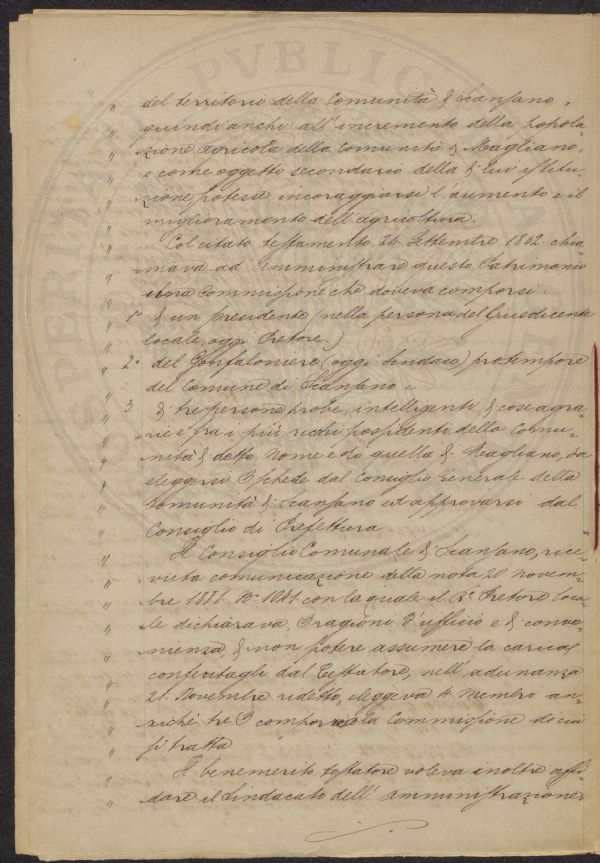 " del territorio della Comunità di Scansano,
" quindi anchi all'incremento della popola-
" zione agricola della Comunità di Magliano,
" e come oggetto secondario della di lui istitu-
" zione, potesse incoraggiarsi l'aumento e il
" miglioramento dell'agricoltura.
" Col citato testamento 24 Settembre 1862 chia-
" mava ad Amministrare questo Patrimonio
" una Commissione che doveva comporsi:
" 1° di un presidente (nella persona del Giusdicente
" locale, oggi Pretore.)
" 2° del Gonfaloniere (oggi Sindaco) protempore
" del Comune di Scansano e
" 3 di tre persone probe, intelligenti di cose agra-
" rie e fra i più ricchi possidenti della Comu-
" nità di detto nome e di quella di Magliano, da
" eleggersi per schede dal Consiglio Generale della
" Comunità di Scansano ed approvarsi dal
" Consiglio di Prefettura
" Il Consiglio Comunale di Scansano, rice-
" vuta comunicazione della nota 20 Novem-
" bre 1881 N° 1041 con la quale il R° Pretore loca-
" le dichiarava, per ragioni d'ufficio e di conve-
" nienza, di non potere assumere la carica
" conferitagli dal Testatore, nell'adunanza
" 21 Novembre ridetto, eleggeva 4 membri an-
" zichè tre per comporre la Commissione di cui
" si tratta
" Il benemerito testatore voleva inoltre affi-
" dare il Sindacato dell'Amministrazione
PVBLIC